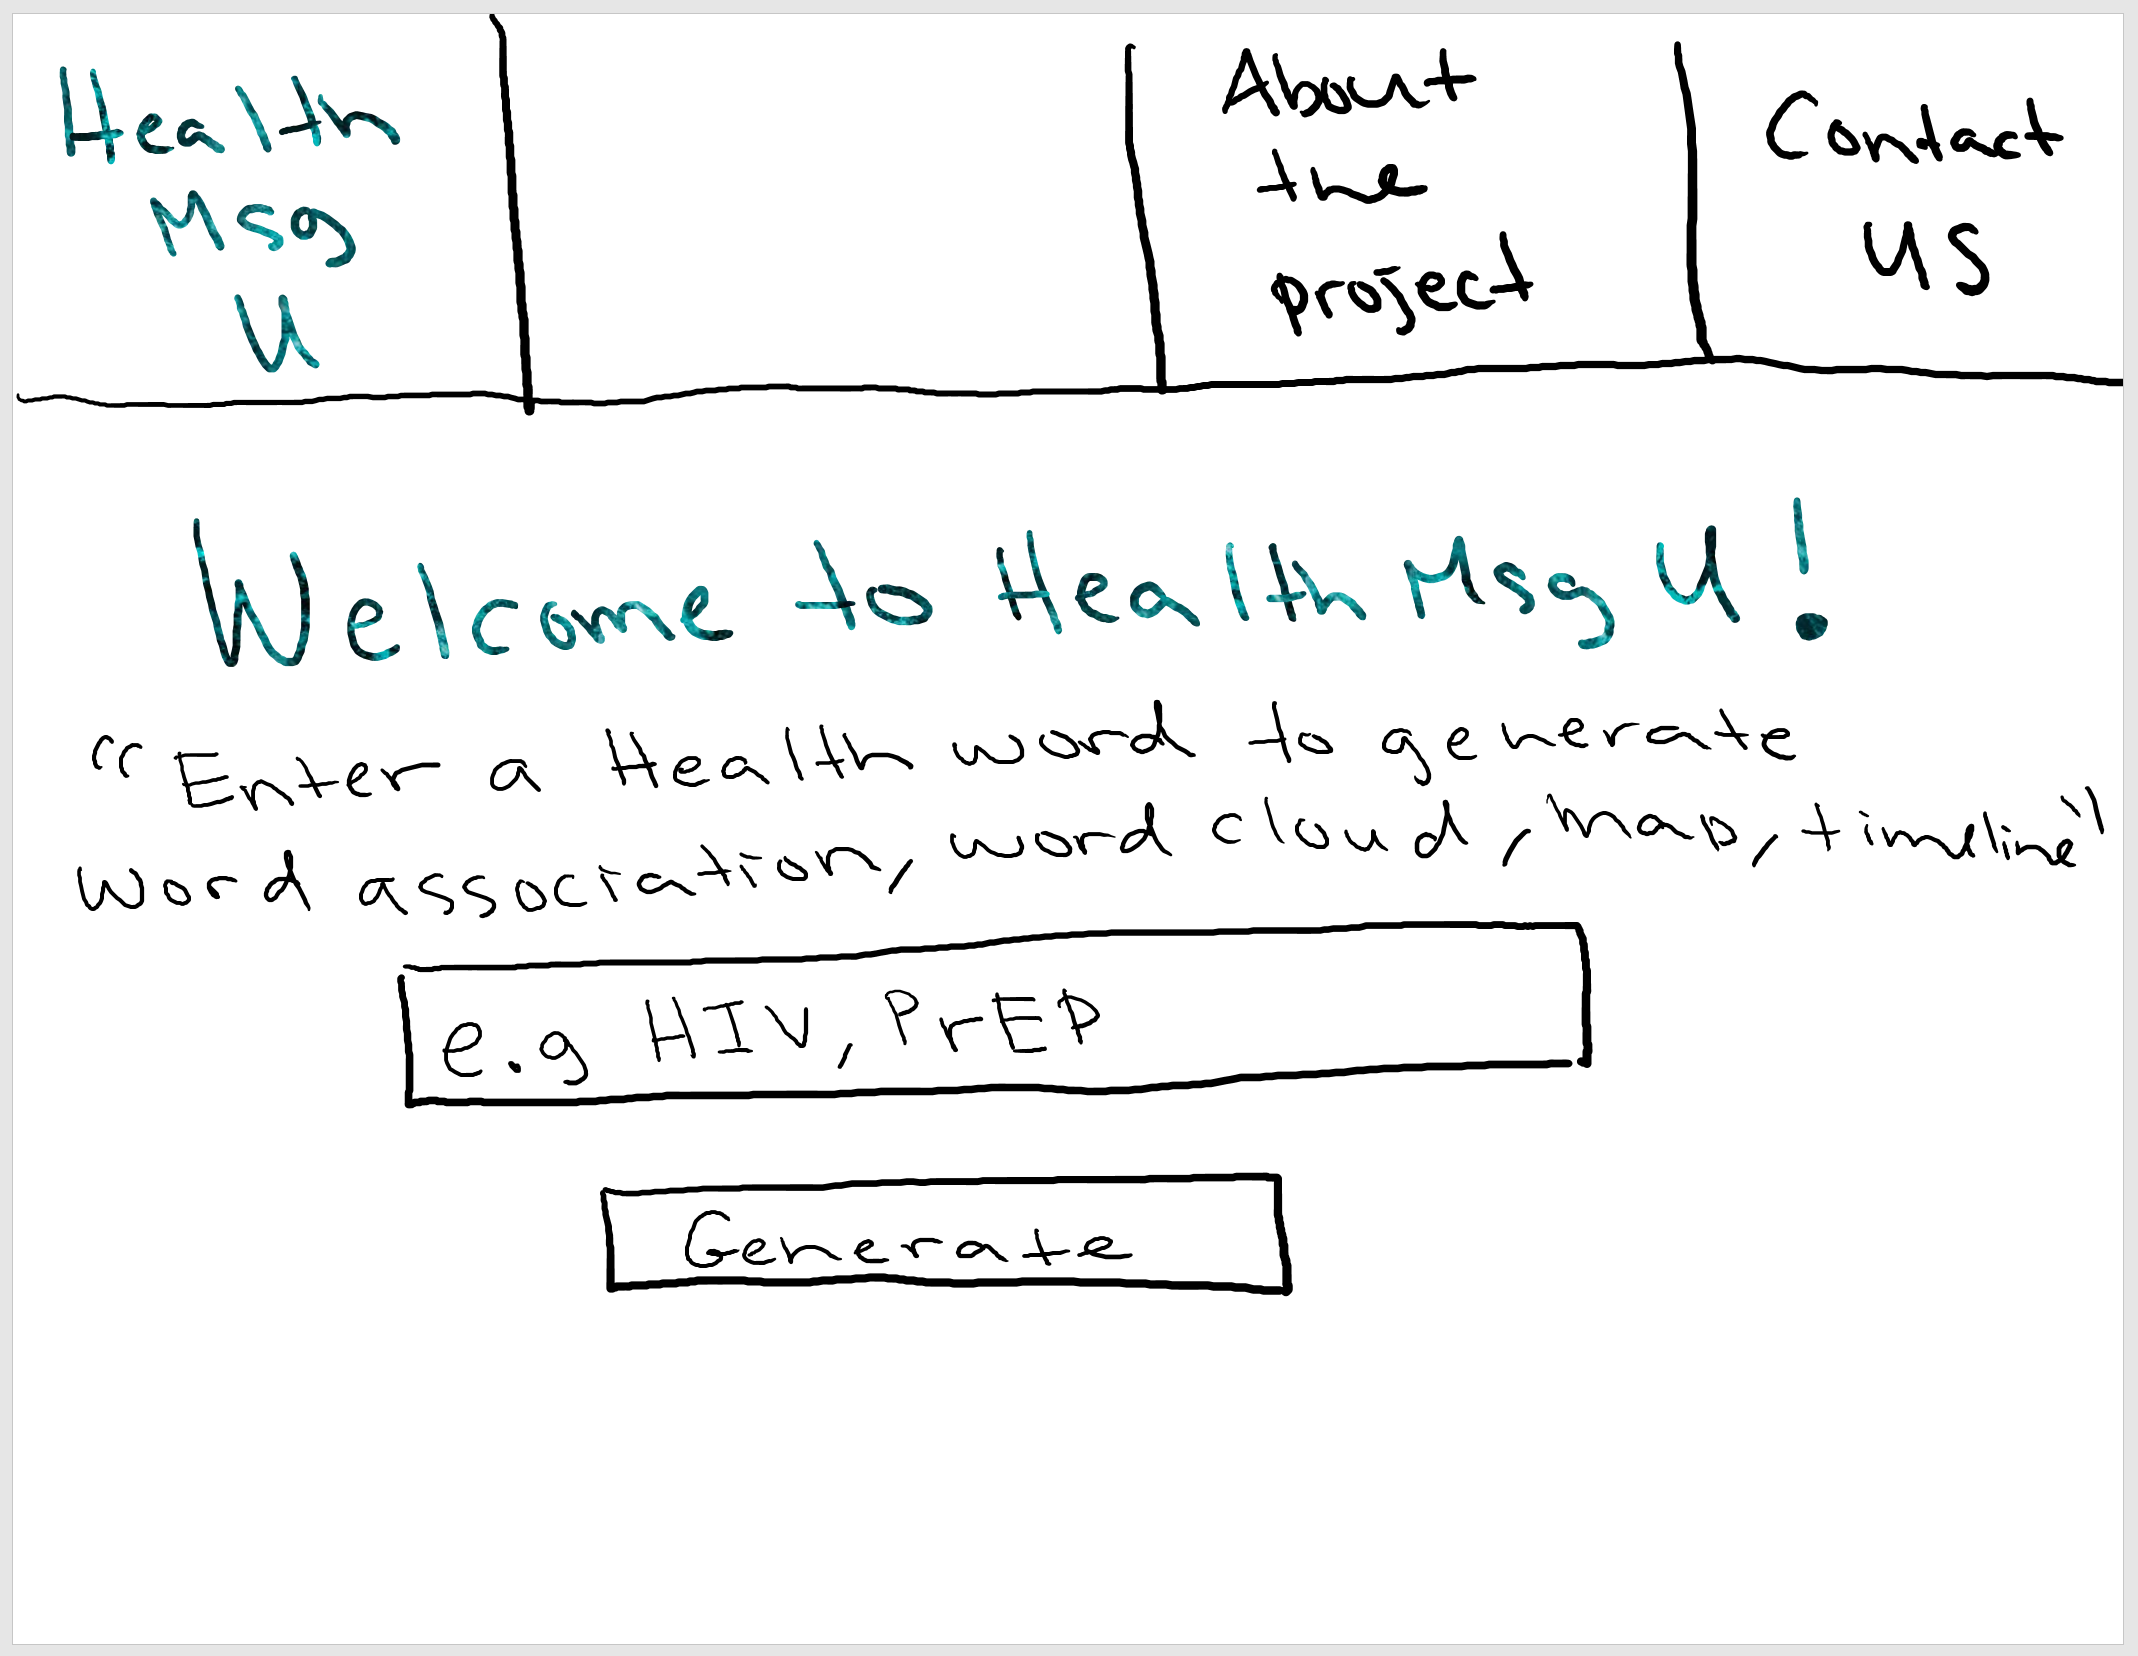 Health
Msg
U
About
the
project
Contact
US
Welcome to Health Msg U!
"Enter a Health word to generate
word association, word cloud, map, timeline"
e.g HIV, PrEP
Generate